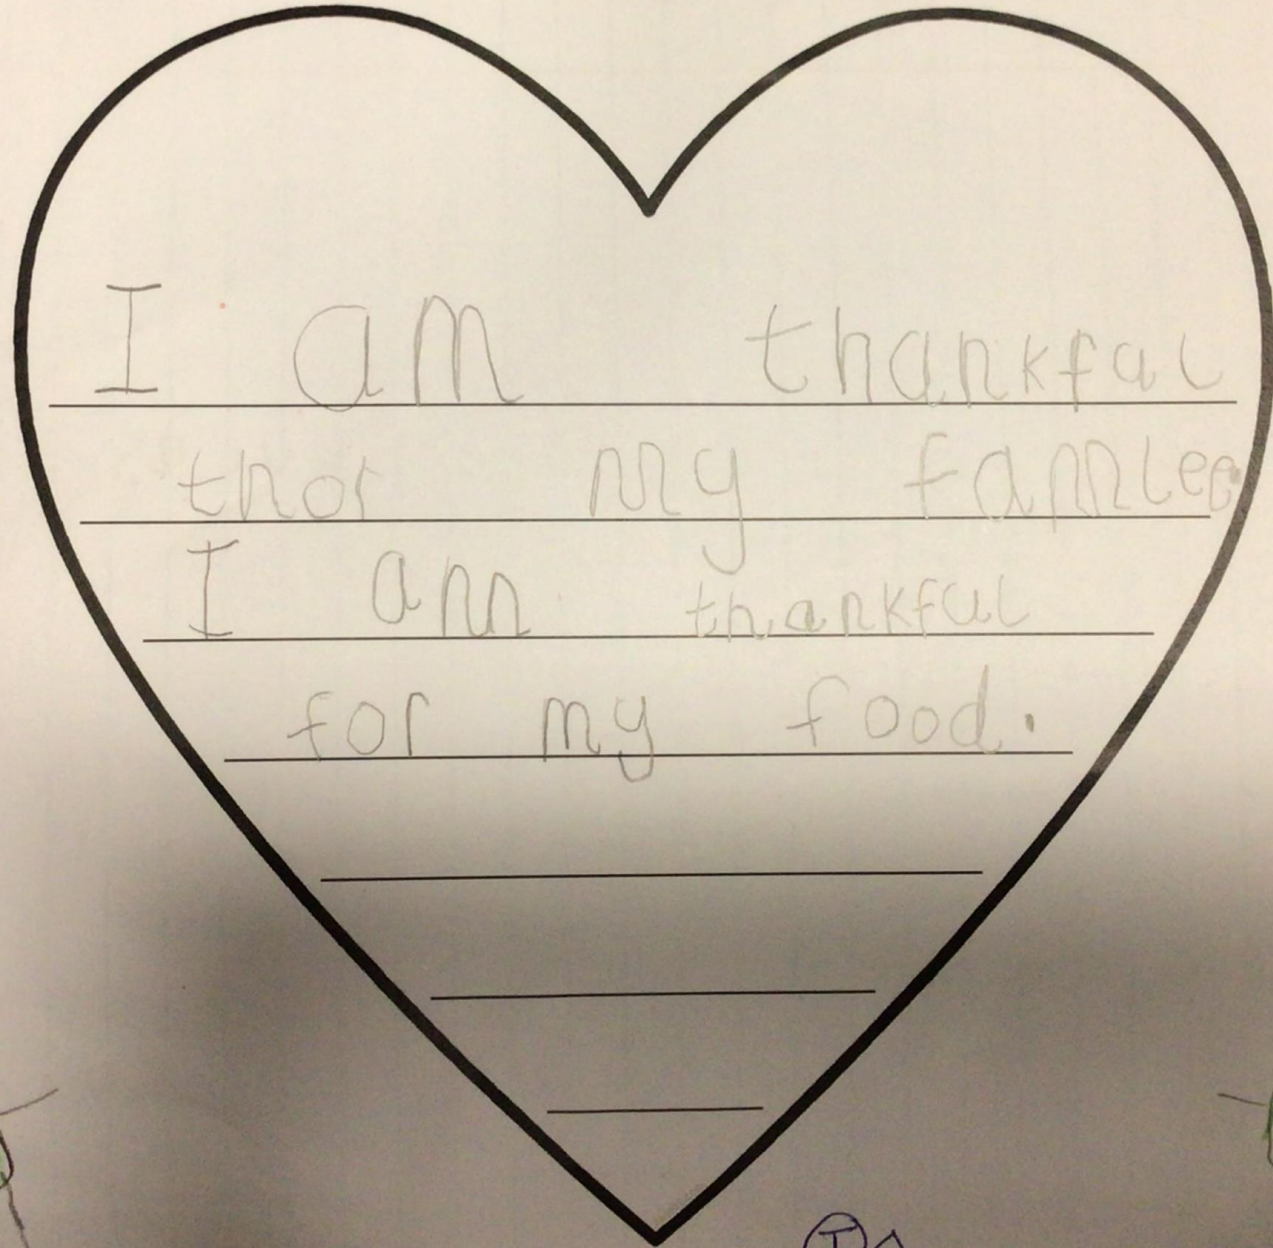 I am thankful
thor my famlee.
I am thankful
for my food.